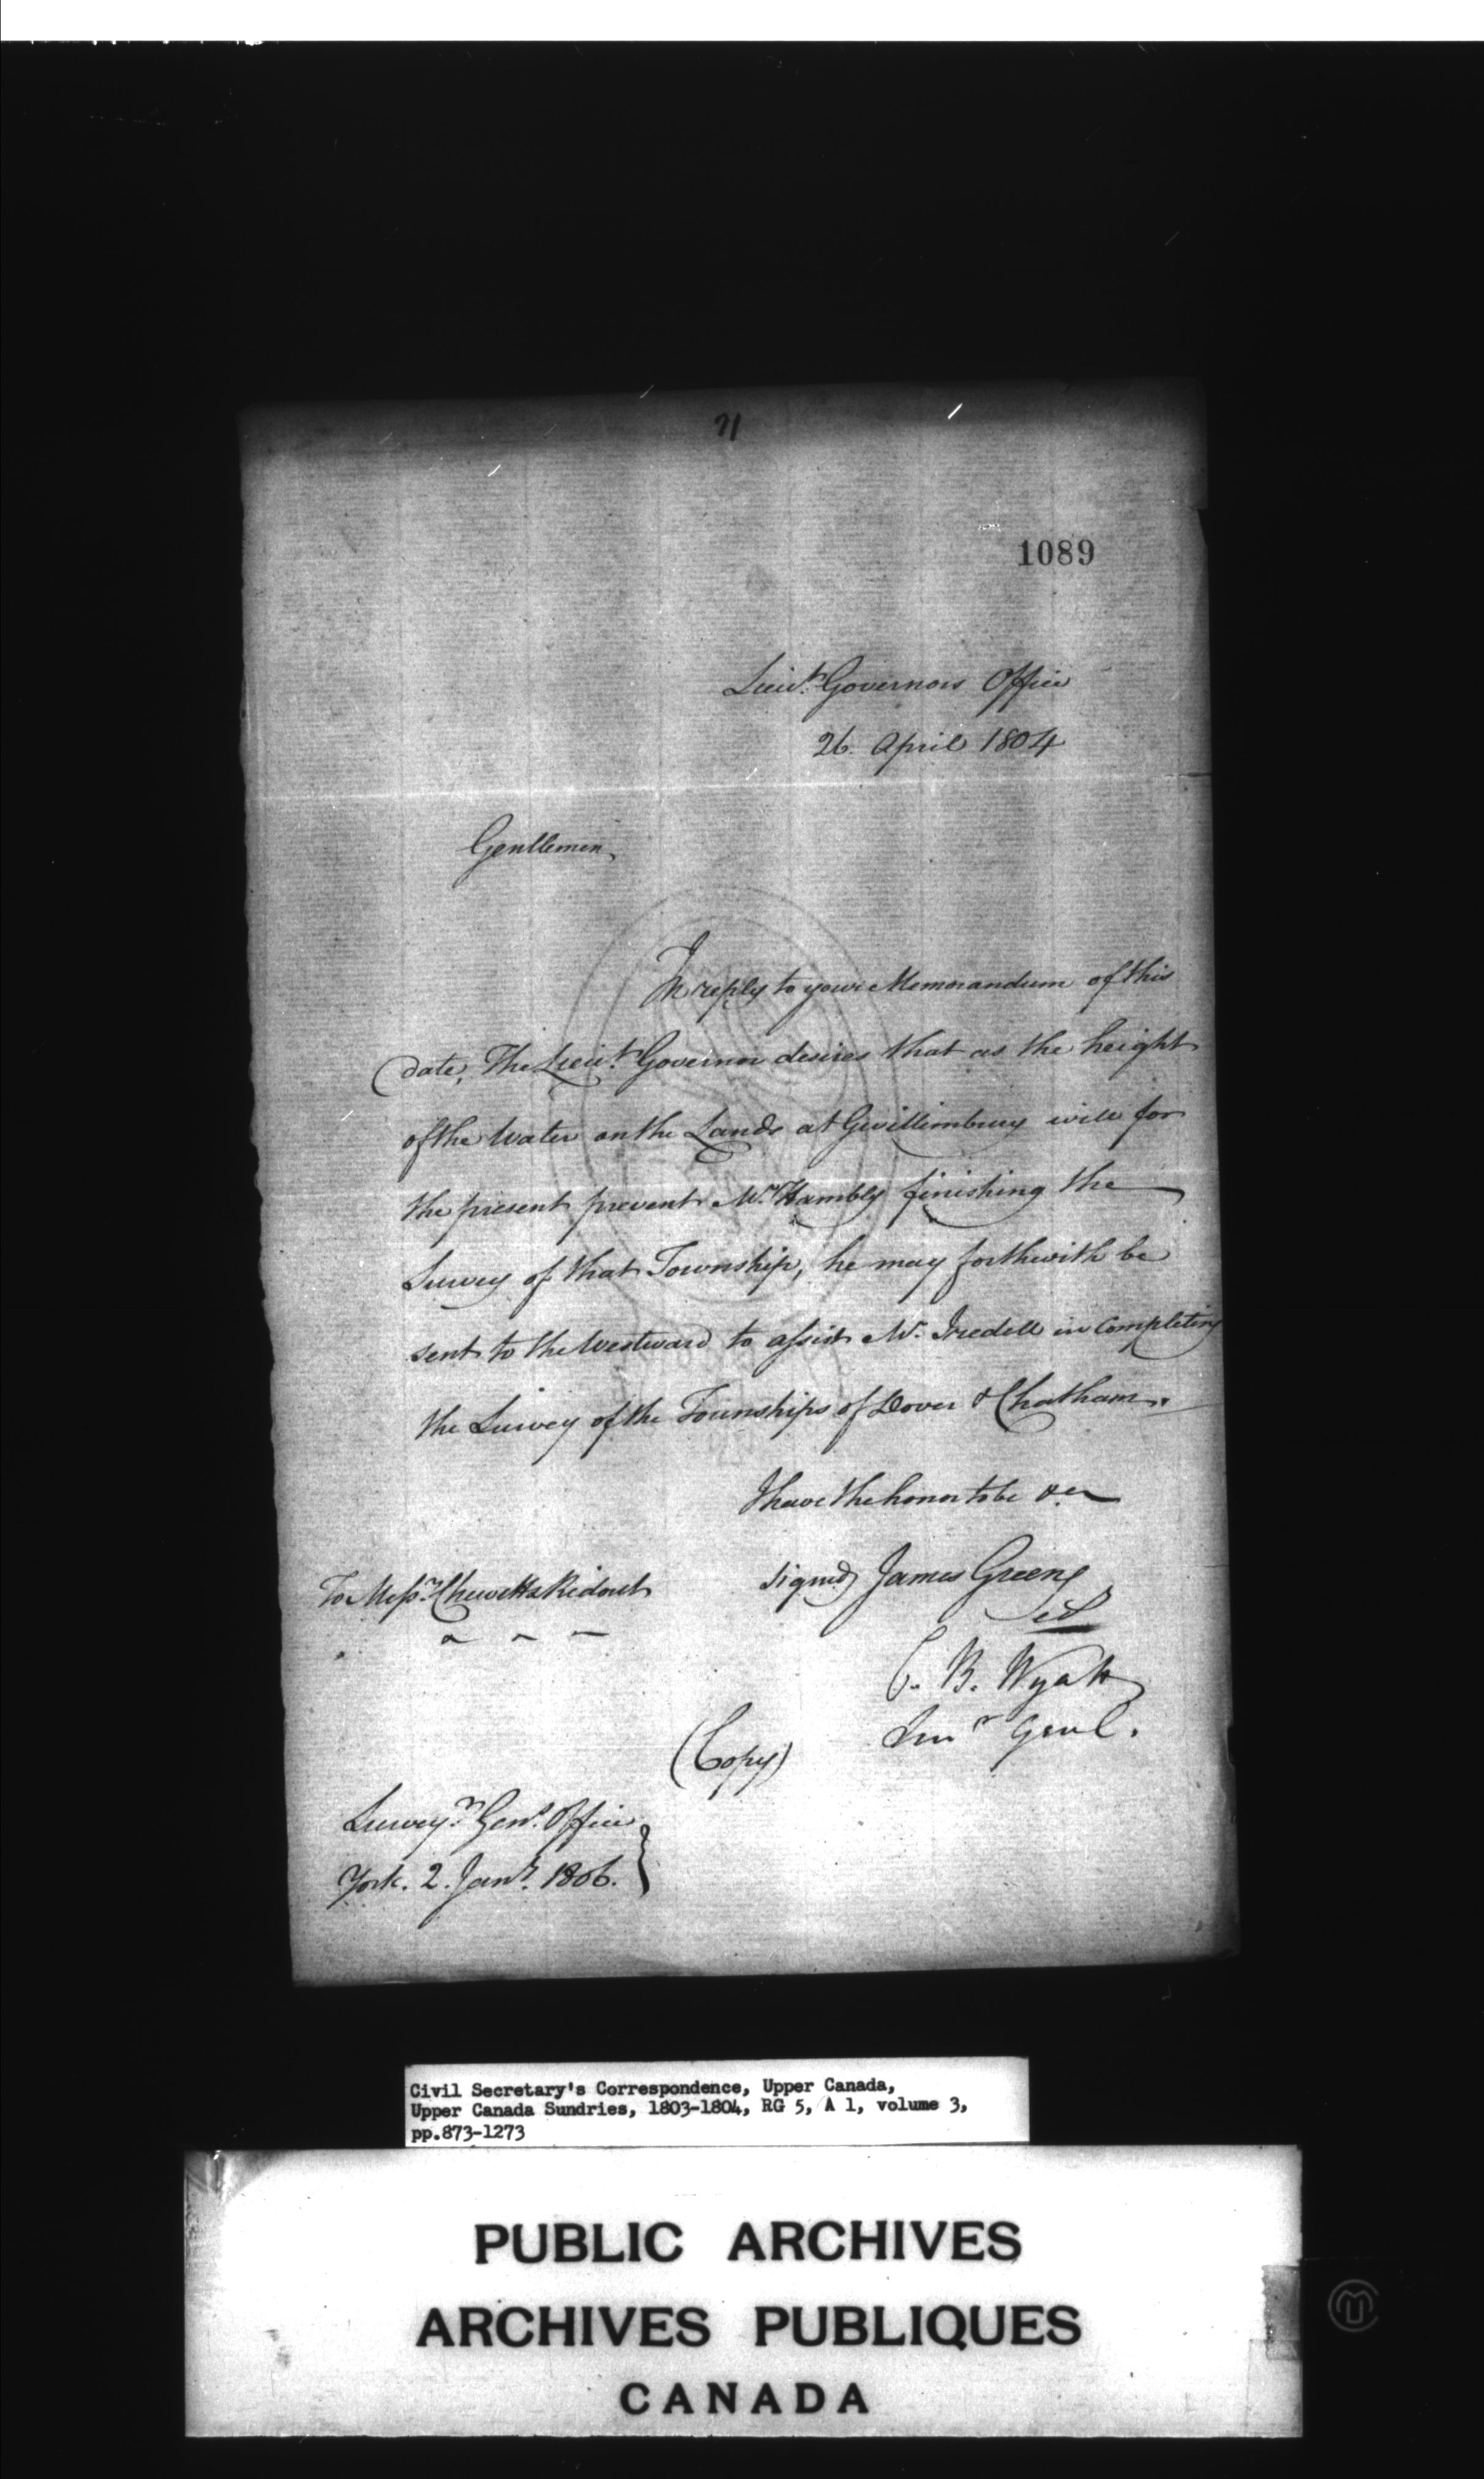 71
1089
Lieut. Governors Office
26. April 1804
Gentlemen,
In reply to your Memorandum of this
date, The Lieut. Governor desires that as the height
of the Water on the Lands at Gwillimbury will for
the present prevent Mr. Hambly finishing the
Survey of that Township, he may forthwith be
sent to the Westward to assist Mr. Iredell in Completing
the Survey of the Townships of Dover & Chatham.
I have the honor to be &c
To Messrs. Chewett & Ridout
signed James Green
C. B. Wyatt
Survr Genl.
(Copy)
Surveyr. Genl. Office
York. 2. Jany. 1806.
Civil Secretary's Correspondence, Upper Canada,
Upper Canada Sundries, 1803-1804, RG 5, A 1, volume 3,
pp.873-1273
PUBLIC ARCHIVES
ARCHIVES PUBLIQUES
CANADA